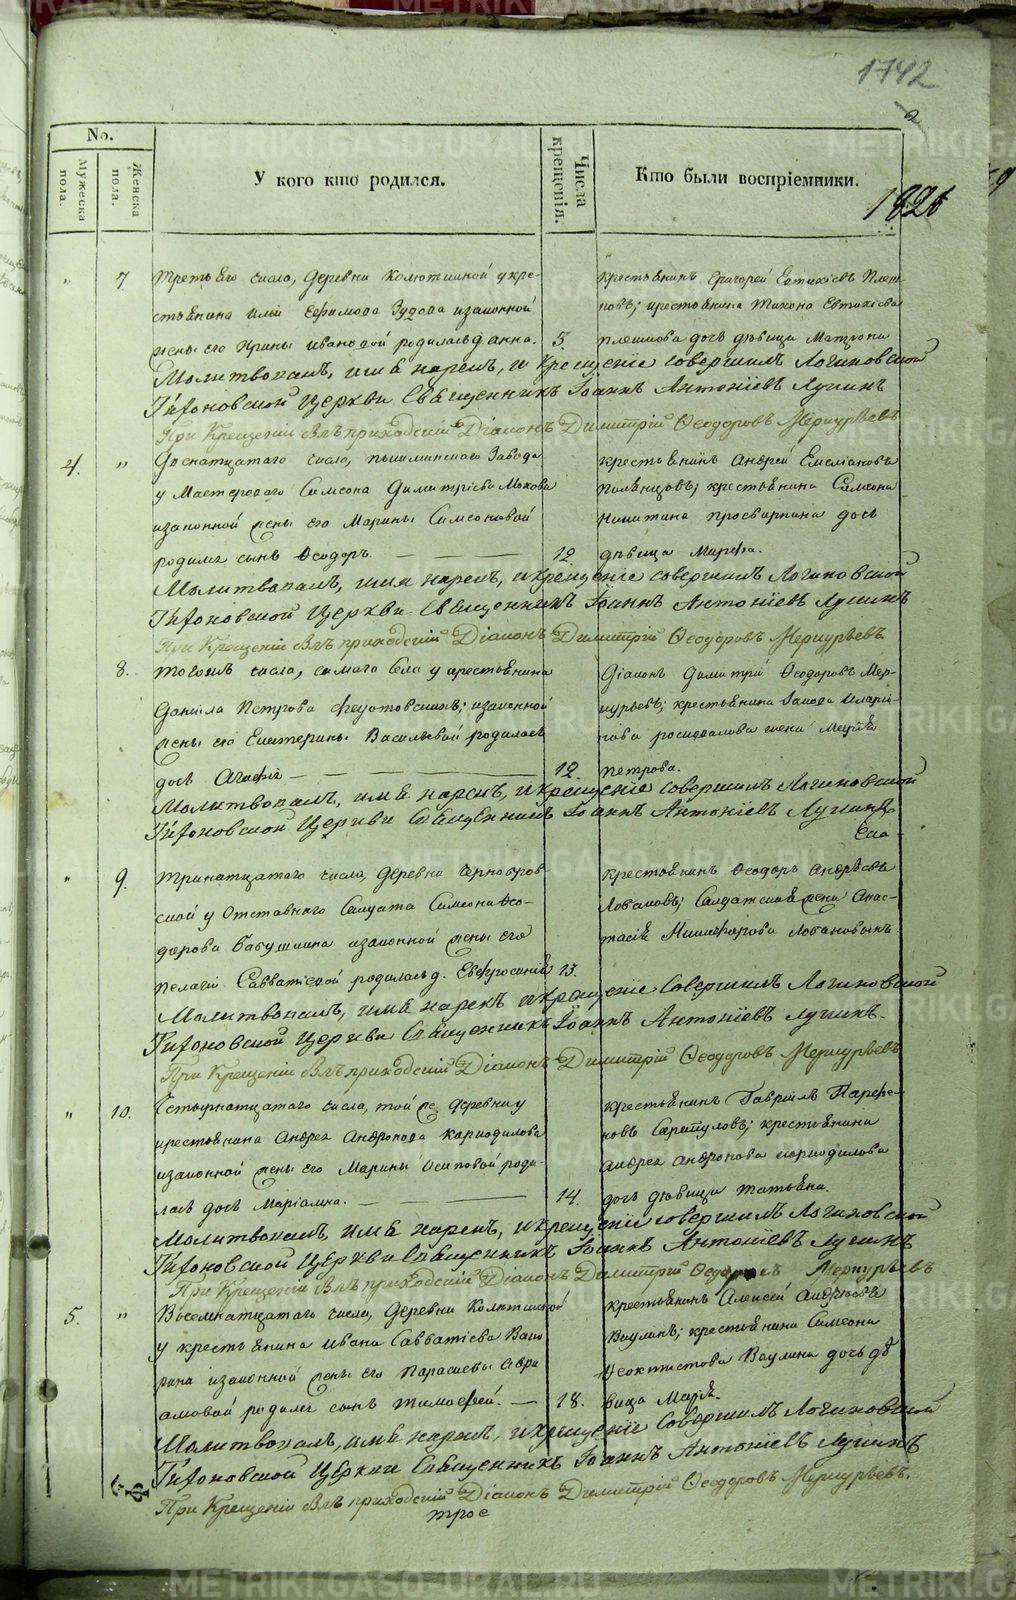 1742
2
No.
Мужеска пола.
Женска пола.
У кого кто родился.
Числа крещенія.
Кто были воспріемники.
1826
" 7. Третьяго числа, деревни Колюткиной у кре-
стьянина Ильи Ефимова Зудова изаконной
жены его Ирины Ивановой родилась д Анна. 5.
крестьянинъ Григорей Евтихіевъ Плеш-
ковъ; крестьянина Тихона Евтихіева
Плешкова дочь дѣвица Матрона
Молитвовалъ, имя нарекъ, и крещеніе совершилъ Логиновской
Тихоновской Церкви Священникъ Іоаннъ Антоніевъ Лучинъ
При Крещеніи былъ приходскій Діаконъ Димитрій Ѳеодоровъ Меркурьевъ
4. " Двенатцатаго числа, пышминскаго Завода
у Мастероваго Симеона Димитріева Махова
изаконной жены его Марины Симеоновой
родился сынъ Ѳеодоръ 12
крестьянинъ Андрей Емеліановъ
крестьянина Симеона
Никитина просвирнина дочь
дѣвица Марфа.
Молитвовалъ, имя нарекъ, и крещеніе совершилъ Логиновской
Тихоновской Церкви Священникъ Іоаннъ Антоніевъ Лучинъ
При Крещеніи былъ приходскій Діаконъ Димитрій Ѳеодоровъ Меркурьевъ
8. тогожъ числа, самаго Села у крестьянина
Даніила Петрова изаконной
жены его Екатерины Васильевой родилась
дочь Агафія 12.
Діаконъ Димитрій Ѳеодоровъ Мер-
курьевъ; крестьянина Иларі-
онова жена
Петрова.
Молитвовалъ, имя нарекъ, и крещеніе совершилъ Логиновской
Тихоновской Церкви Священникъ Іоаннъ Антоніевъ Лучинъ
" 9. Тринатцатаго числа, деревни Чернобров-
ской у Отставнаго Солдата Симеона Ѳео-
дорова Бабушкина изаконной жены его
Пелагіи Савватіевой родилась д. Евфросинія 13.
крестьянинъ Ѳеодоръ Андрѣевъ
Лобановъ; Солдатская жена Анас-
тасія Никифорова Лобановыхъ.
Молитвовалъ, имя нарекъ и крещеніе Совершилъ Логиновской
Тихоновской Церкви Священникъ Іоаннъ Антоніевъ Лучинъ.
При Крещеніи былъ приходскій Діаконъ Димитрій Ѳеодоровъ Меркурьевъ
" 10. Четырнатцатаго числа, той же деревни у
крестьянина Андрея Андронова Кармодилова
изаконной жены его Марины Осиповой роди-
лась дочь Маріамна. 14.
крестьянинъ Гавріилъ Парфе-
новъ Сарапуловъ; крестьянина
Андрея Андронова Кармодилова
дочь дѣвица Татьяна.
Молитвовалъ, имя нарекъ, и крещеніе совершилъ Логиновской
Тихоновской Церкви Священникъ Іоаннъ Антоніевъ Лучинъ
При Крещеніи былъ приходскій Діаконъ Димитрій Ѳеодоровъ Меркурьевъ
5. " Восемнатцатаго числа, деревни Колюткиной
у крестьянина Ивана Савватіева
изаконной жены его Парасковьи Авра-
амовой родился сынъ Тимофей. 18.
крестьянинъ Алексѣй
Ваулинъ; крестьянина Симеона
Ѳеоктистова Ваулина дочь дѣ
вица Марія.
Молитвовалъ, имя нарекъ, и крещеніе Совершилъ Логиновской
Тихоновской Церкви Священникъ Іоаннъ Антоніевъ Лучинъ
При Крещеніи былъ приходскій Діаконъ Димитрій Ѳеодоровъ Меркурьевъ.
METRIKI.GASO-URAL.RU